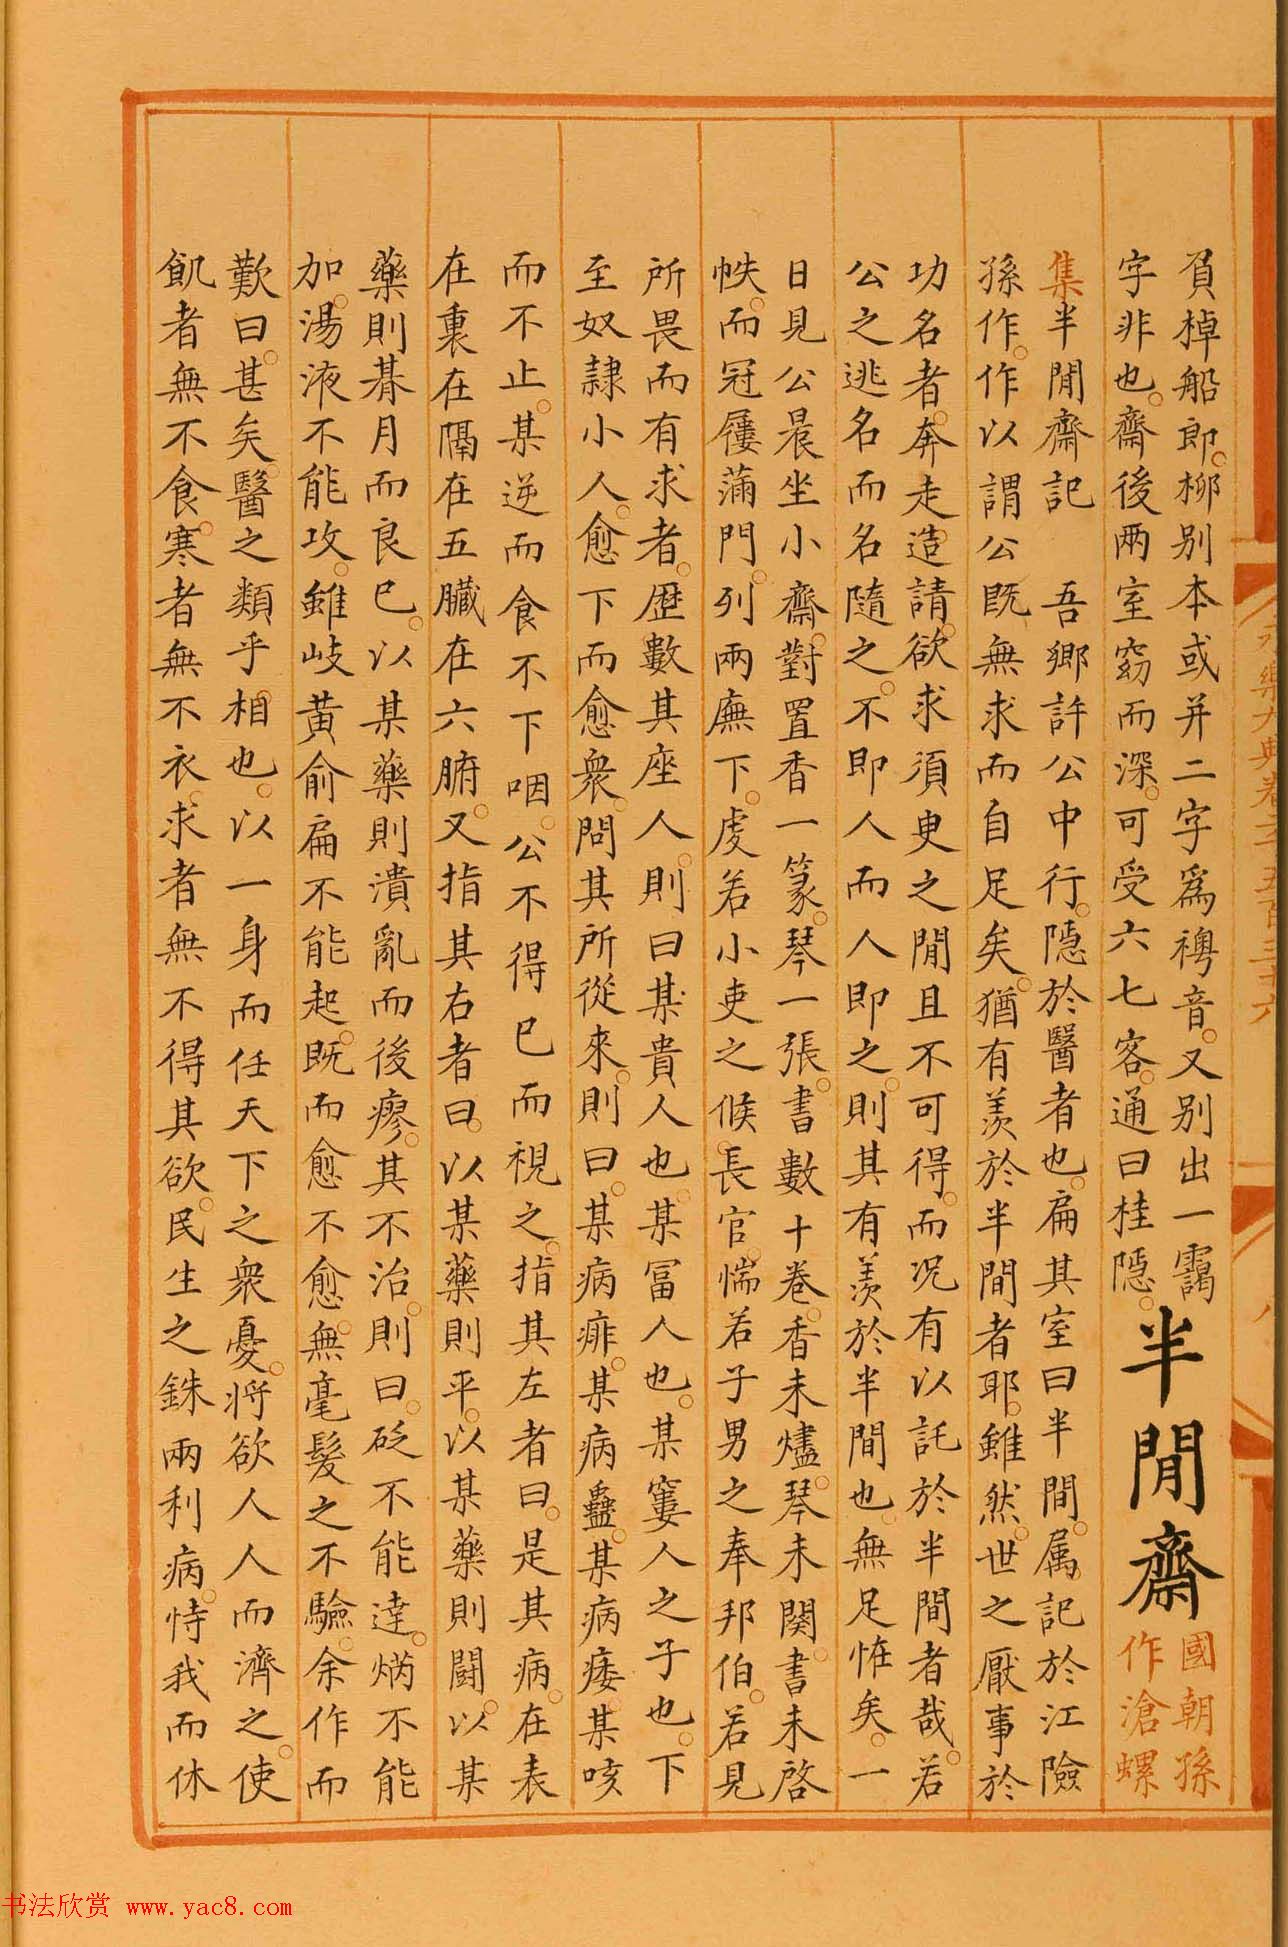 負棹船郎。柳别本或并二字爲禣音。又别出一靄
字非也。齋後兩室窈而深。可受六七客。通曰桂隱。
半閒齋
國朝孫
作滄螺
集半閒齋記 吾鄉許公中行。隱於醫者也。扁其室曰半間。属記於江險
孫作。作以謂公既無求而自足矣。猶有羡於半間者耶。雖然。世之厭事於
功名者。奔走造請。欲求須臾之閒且不可得。而况有以託於半間者哉。若
公之逃名而名隨之。不即人而人即之。則其有羡於半間也。無足恠矣。一
日見公晨坐小齋。對置香一篆。琴一張。書數十卷。香未燼。琴未闋。書未啓
帙。而冠屨蒲門。列兩廡下。虔若小吏之候長官。惴若子男之奉邦伯。若見
所畏而有求者。歷數其座人。則曰某貴人也。某冨人也。某窶人之子也。下
至奴隷小人。愈下而愈衆。問其所從來。則曰。某病痱。某病蠱。某病痿。某咳
而不止。某逆而食不下咽。公不得已而視之。指其左者曰。是其病。在表
在裏在隔在五臟在六腑。又指其右者曰。以某藥則平。以某藥則鬬。以某
藥則朞月而良已。以某藥則潰亂而後瘳。其不治。則曰。砭不能達。焫不能
加。湯液不能攻。雖岐黄俞扁不能起。既而愈不愈。無毫髮之不驗。余作而
歎曰。甚矣。醫之類乎相也。以一身而任天下之衆憂。將欲人人而濟之。使
飢者無不食。寒者無不衣。求者無不得其欲。民生之銖兩利病。恃我而休
永樂大典卷二千五百三十六
八
书法欣赏 www.yac8.com